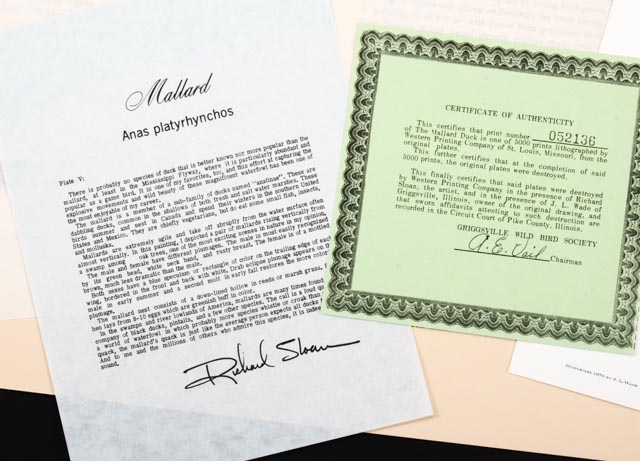 Mallard
Anas platyrhynchos
Plate V:
There is probably no species of duck that is better known nor more popular than the
mallard, at least in the Mississippi Flyway, where it is particularly abundant and
popular as a game bird. It is one of my favorites, too, and this effort at capturing the
explosive movements and wild beauty of these magnificent waterfowl has been one of
the most enjoyable of my career.
The mallard is a member of a sub-family of ducks named "anatinae". These are
dabbling ducks, common in the shallows of both fresh and salt water marshes. These
birds summer and nest in Canada and spend their winters in the southern United
States and Mexico. They are chiefly vegetarians, but do eat some small fish, insects,
and mollusks.
Mallards are extremely agile and take off abruptly from the water surface often
almost vertically. In this painting, I depicted a pair of mallards rising vertically from
a swamp among oak trees, one of the most exciting scenes in nature in my opinion.
The male and female have different plumages. The male is most easily recognized
by its green head, white neck band, and rusty breast. The female is a mottled
brown, much less dramatic than the male.
Both sexes have a blue speculum or rectangle of color on the trailing edge of each
wing, bordered in the front and back with white. Drab eclipse plumage appears on
male in early summer and a second molt in early fall restores the more color
plumage.
The mallard nest consists of a down-lined hollow in reeds or marsh grass,
hen lays from 8-15 eggs which are greenish buff in color.
In the swamps and river lowlands of America, mallards are many times found
company of black ducks, pintails, and a few other species. The call is a loud
a world of waterfowl in which probably more species whistle or croak than
quack, the mallard's quack is just like the average person expects all ducks
And to me and the millions of others who admire this species, it is indeed
sound.
Richard Sloan
CERTIFICATE OF AUTHENTICITY
This certifies that print number 052136
of The Mallard Duck is one of 5000 prints lithographed by
Western Printing Company of St. Louis, Missouri, from the
original plates.
This further certifies that at the completion of said
5000 prints, the original plates were destroyed.
This finally certified that said plates were destroyed
by Western Printing Company in the presence of Richard
Sloan, the artist, and in the presence of J. L. Wade of
Griggsville, Illinois, owner of the original drawing, and
that sworn affidavits attesting to such destruction are
recorded in the Circuit Court of Pike County, Illinois.
GRIGGSVILLE WILD BIRD SOCIETY
Chairman